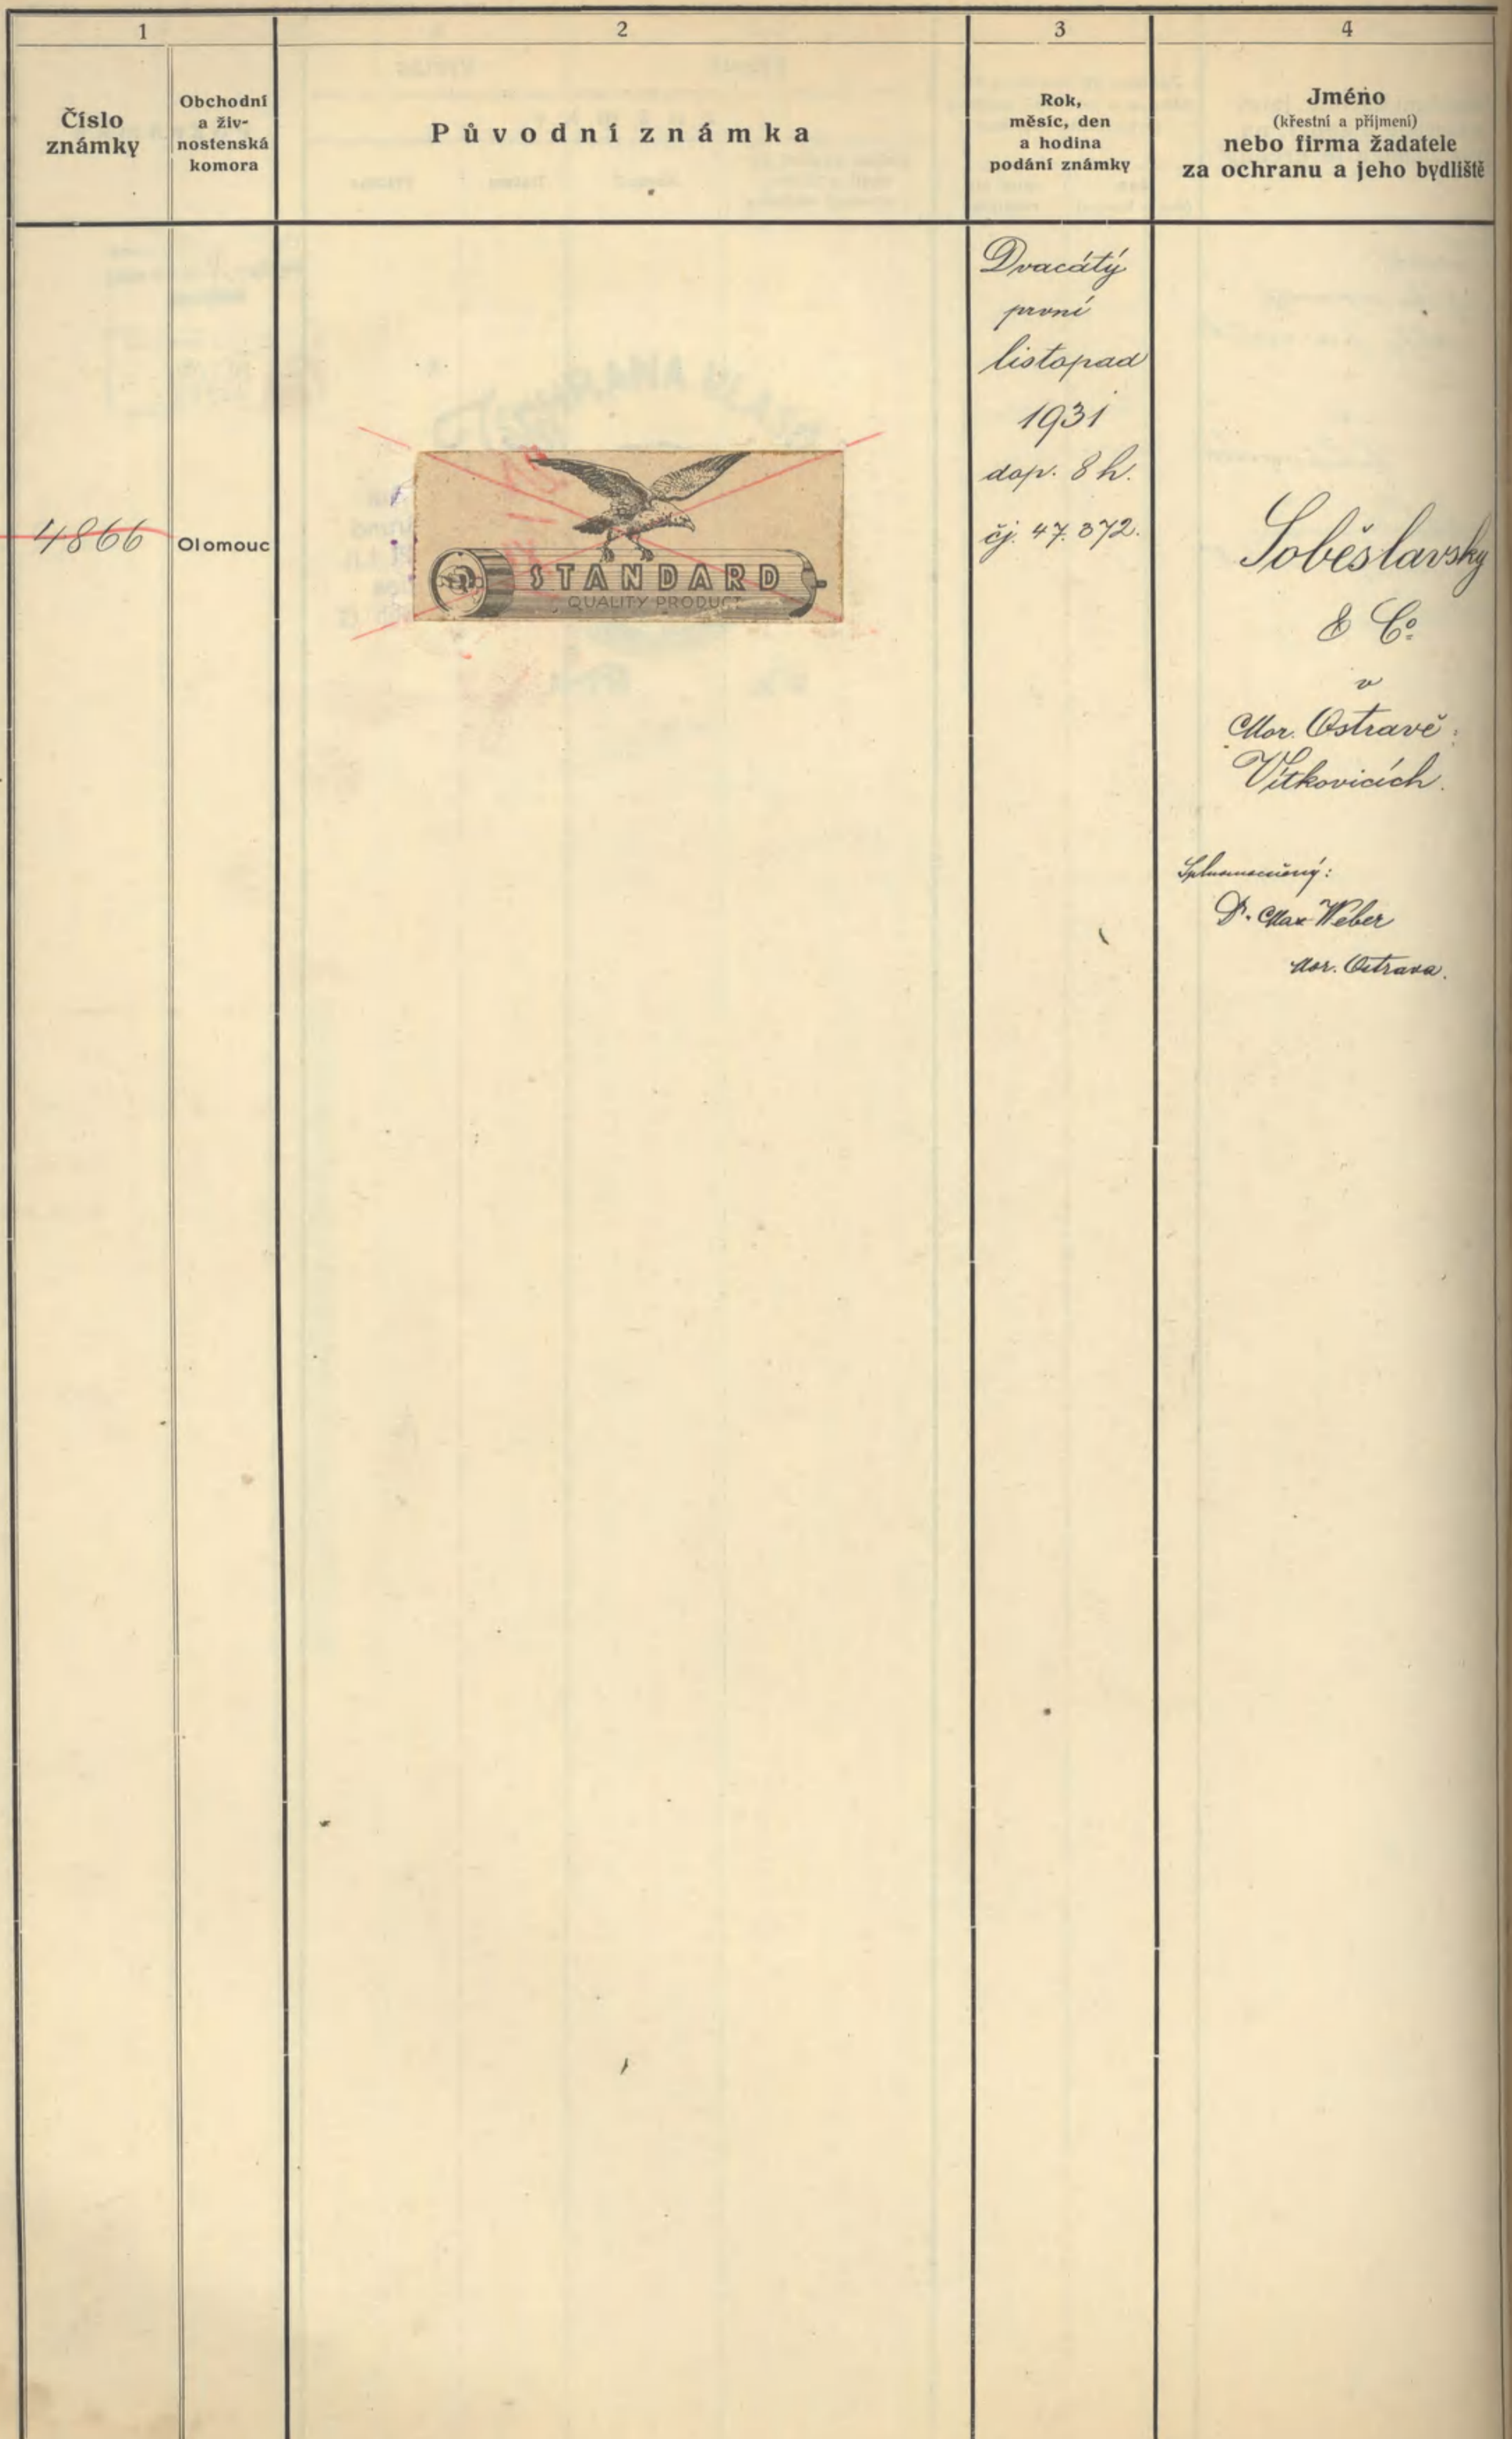 1
2
3
4
Číslo
známky
Obchodní
a živ-
nostenská
komora
Původní známka
Rok,
měsíc, den
a hodina
podání známky
Jméno
(křestní a příjmení)
nebo firma žadatele
za ochranu a jeho bydliště
4866
Olomouc
STANDARD
QUALITY PRODUCT
Dvacátý
první
listopad
1931
dop. 8 h.
čj. 47.372.
Soběslavský
& Co.
v
Mor. Ostravě:
Vítkovicích.
Splnomocněný:
Dr. Max Weber
Mor. Ostrava.